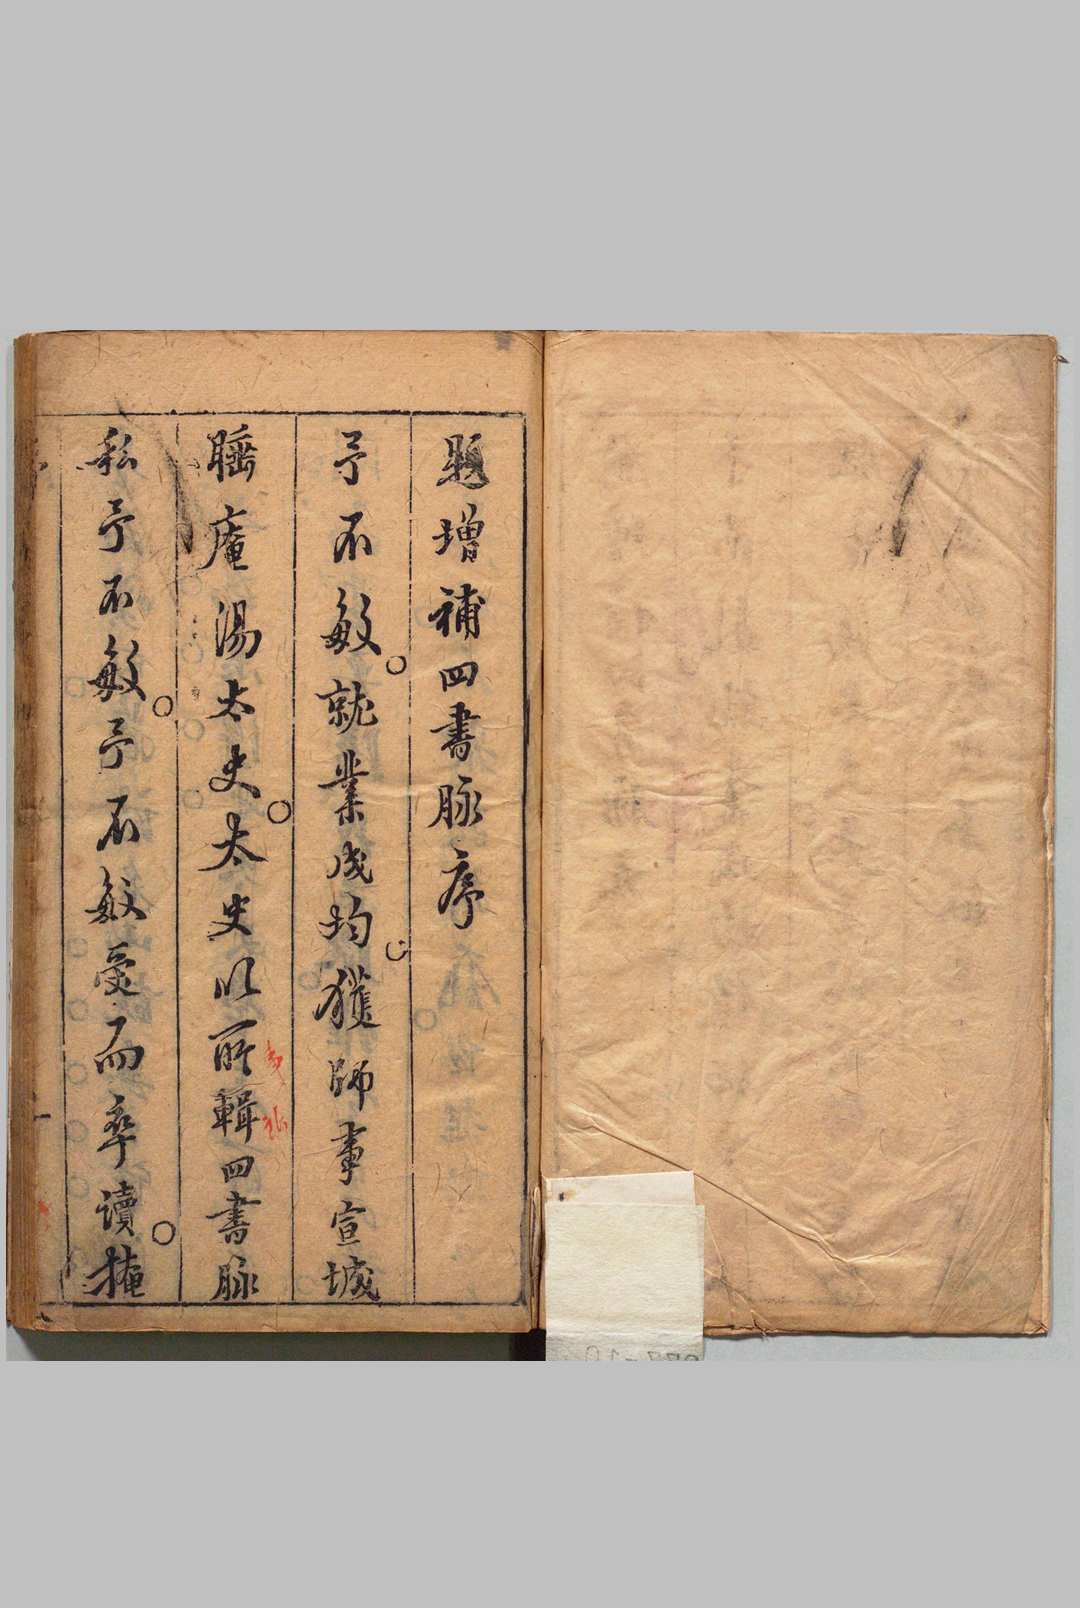 題增補四書脉序
予不敏就業成均獲師事宣城
睡庵湯太史太史以所輯四書脉
私予不敏予不敏受而卒讀掩